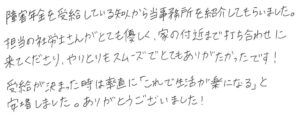 障害年金を受給している知人から当事務所を紹介してもらいました。
担当の社労士さんがとても優しく、家の付近まで打ち合わせに
来てくださり、やりとりもスムーズでとてもありがたかったです!
受給が決まった時は素直に「これで生活が楽になる」と
安堵しました。ありがとうございました!